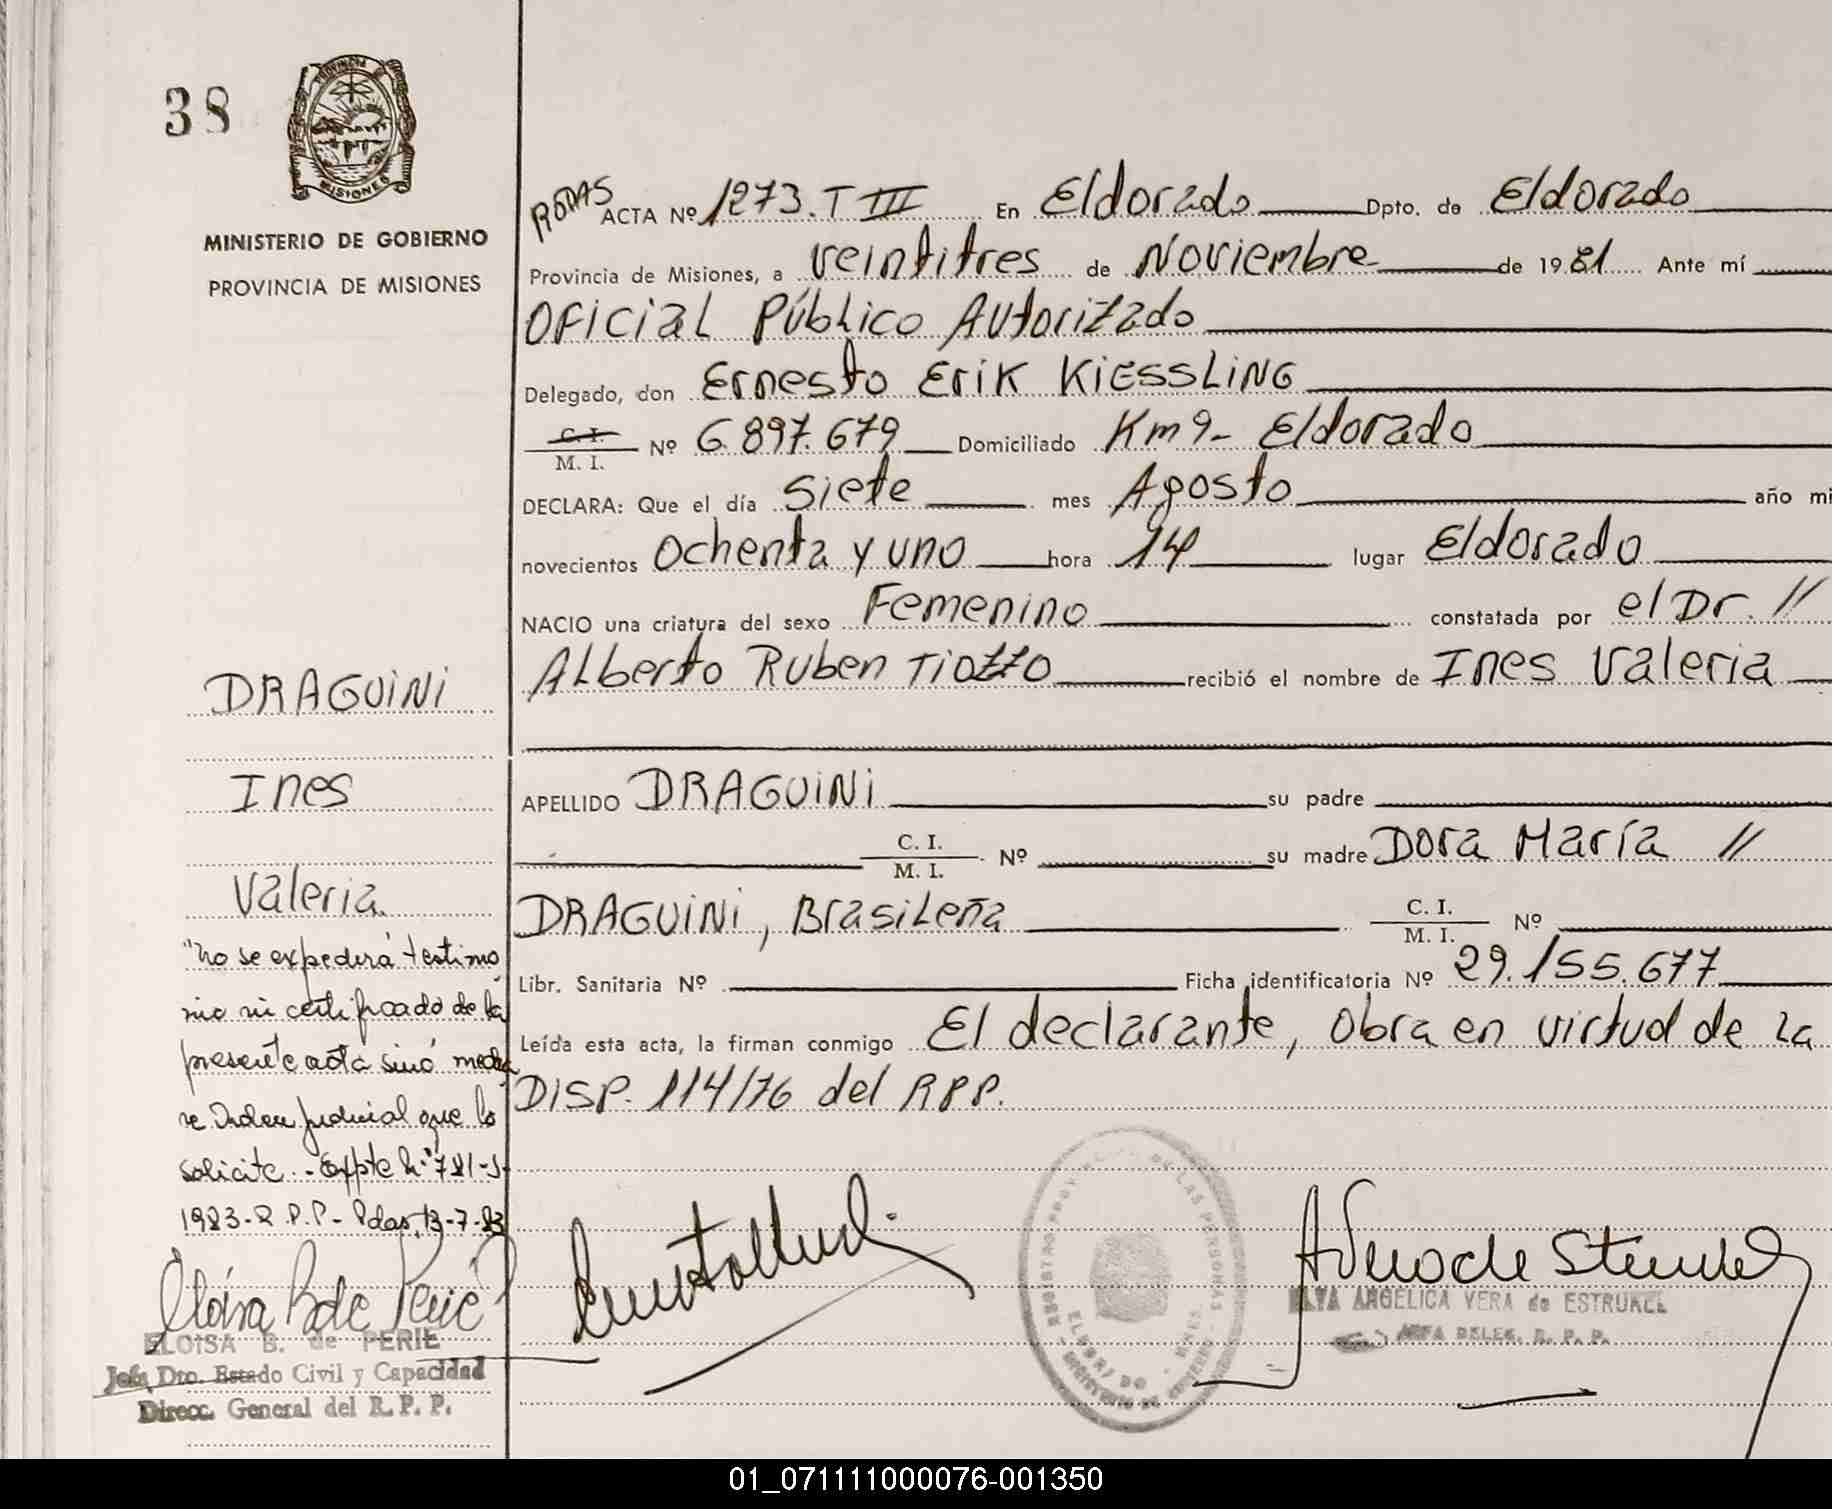 38
PROVINCIA DE
MISIONES
MINISTERIO DE GOBIERNO
PROVINCIA DE MISIONES
RODAS ACTA Nº 1273. T III En Eldorado Dpto. de Eldorado
Provincia de Misiones, a veintitres de Noviembre de 1981 Ante mí
Oficial Público Autorizado
Delegado, don Ernesto Erik Kiessling
C. I.
M. I. Nº 6.897.679 Domiciliado Km 9- Eldorado
DECLARA: Que el día Siete mes Agosto año mi
novecientos ochenta y uno hora 14 lugar Eldorado
NACIO una criatura del sexo Femenino constatada por el Dr. //
Alberto Ruben Tiozzo recibió el nombre de Ines Valeria
DRAGUINI
Ines
Valeria.
APELLIDO DRAGUINI su padre
C. I.
M. I. Nº su madre Dora María //
DRAGUINI, Brasileña C. I.
M. I. Nº
Libr. Sanitaria Nº Ficha identificatoria Nº 29.155.677
Leída esta acta, la firman conmigo El declarante, Obra en virtud de la
DISP. 114/76 del RPP.
"no se expederá testimo
nio ni certificado de la
presente acta sinó media
re Orden judicial que lo
solicite.- Expte N.º 781-S-
1983-R.P.P- Pdas, 13-7-83
ELOISA B. de PERIE
Jefa Dto. Estado Civil y Capacidad
Direcc. General del R. P. P.
REGISTRO PROVINCIAL DE LAS PERSONAS
ELDORADO
ELVA ANGELICA VERA de ESTRUKEL
JEFA DELEG. R. P. P.
01_071111000076-001350